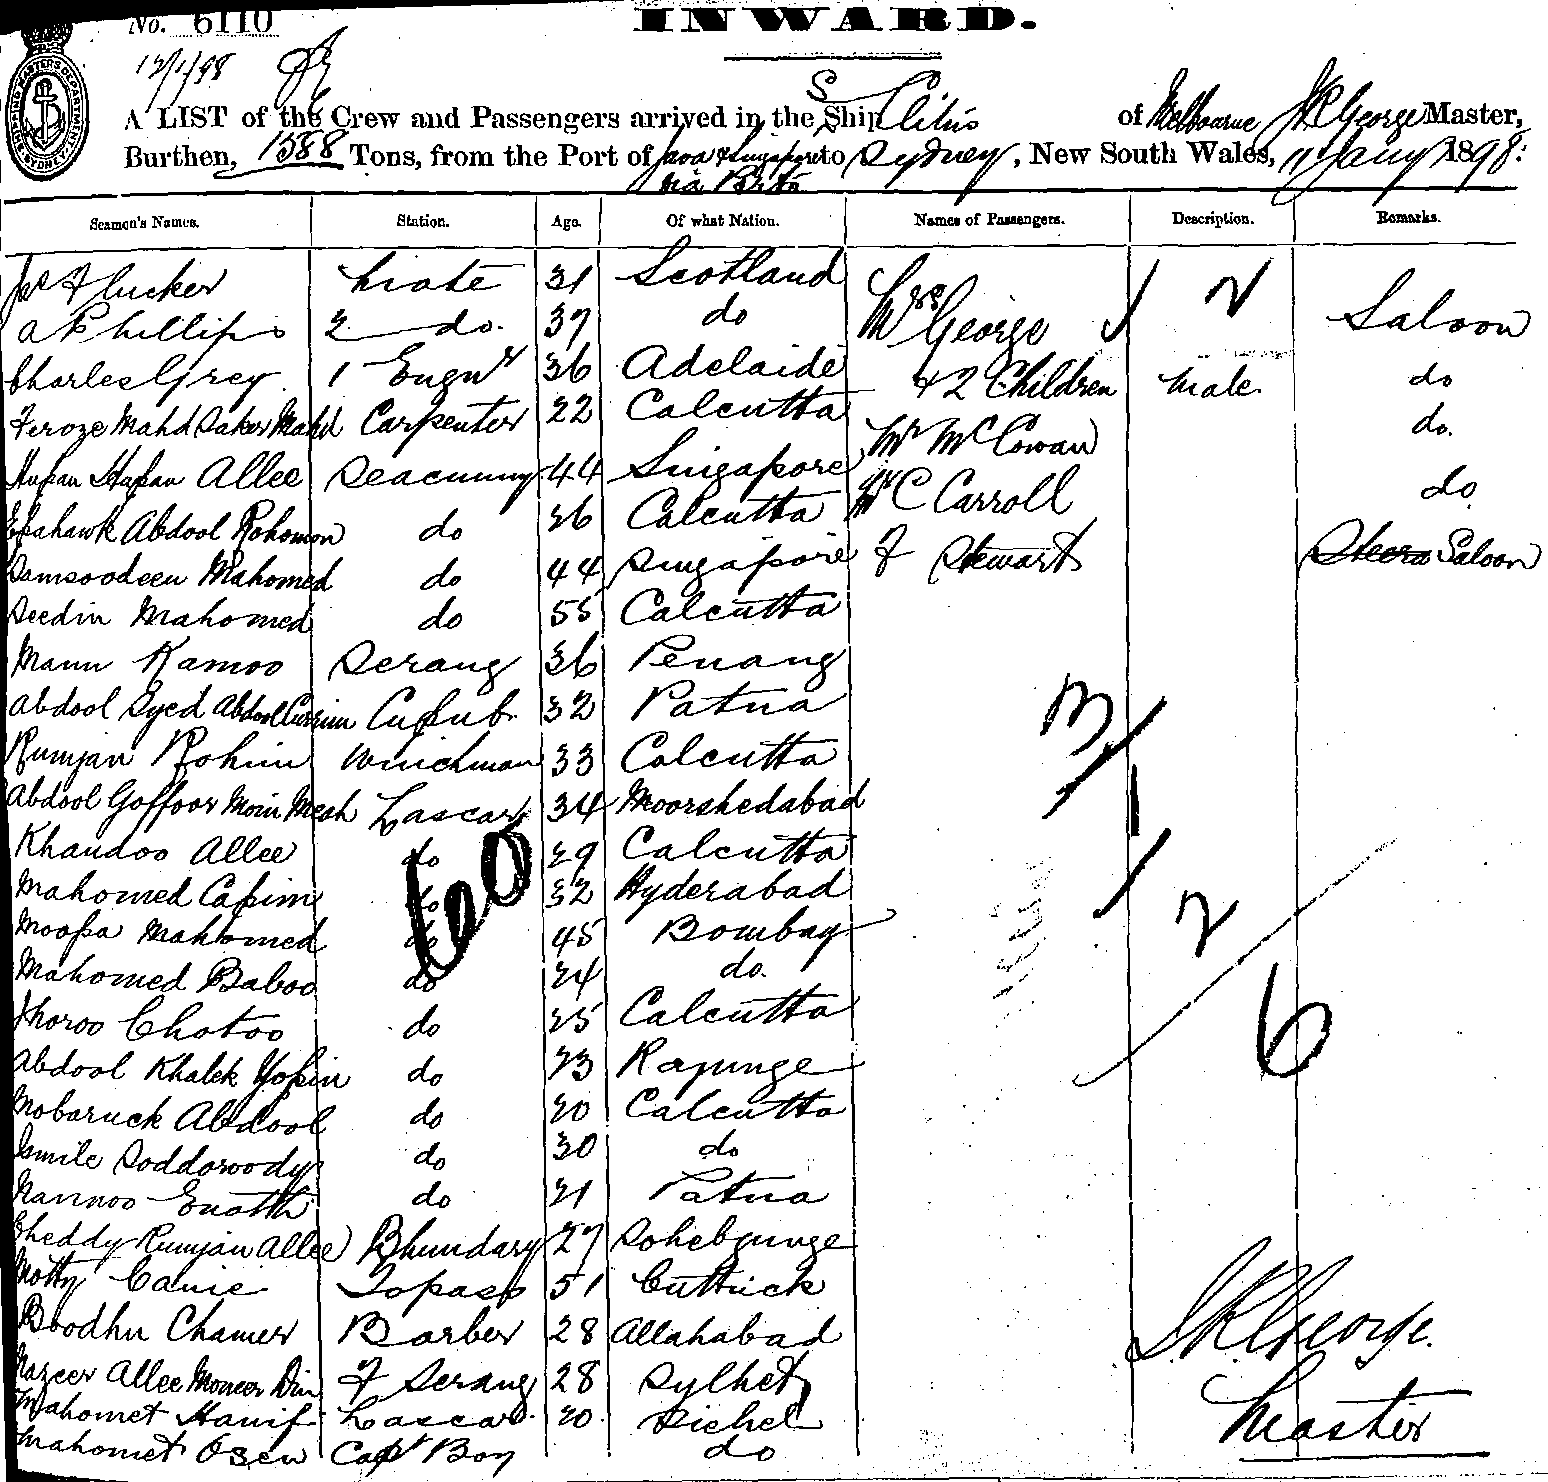 No. 6110
INWARD.
12/1/98
A LIST of the Crew and Passengers arrived in the S Ship Clitus of Melbourne J R George Master,
Burthen, 1588 Tons, from the Port of Java & Singapore to Sydney, New South Wales, 11 Jany 1898:
via Ports
Seamen's Names. Station. Age. Of what Nation. Names of Passengers. Description. Remarks.
Flucker Mate 31 Scotland
A Phillips 2 do. 37 do Mrs George 2 Saloon
Charles Grey 1 Engnr 36 Adelaide + 2 Children Male do
Feroze Mahd Saker Mahd Carpenter 22 Calcutta Mr McCowan do.
Allee Seacunny 44 Singapore Mr C Carroll do
Abdool Rohomon do 36 Calcutta
Samsoodeen Mahomed do 44 Singapore F Stewart Saloon
Seedin Mahomed do 55 Calcutta
Mann Kamoo Serang 36 Penang
Abdool Syed Abdool Currim 32 Patna
Rumjan Rohim Winchman 33 Calcutta
Abdool Goffoor Moin Meah Lascar 34 Moorshedabad
Khandoo Allee do 29 Calcutta
Mahomed Casim do 32 Hyderabad
Moosa Mahomed do 45 Bombay
Mahomed Baboo do 24 do.
Choroo Chotoo do 25 Calcutta
Abdool Khalek do 23
Mobaruck Abdool do 20 Calcutta
Ismile do 30 do
Mannoo Enatth do 21 Patna
Rumjan Allee Bhundary 27 Sohebgunge
Motty Canie Topass 51 Cuttuck
Boodhu Chamer Barber 28 Allahabad
Nazeer Allee Moneer Din F Serang 28 Sylhet
Mahomet Hanif Lascar 20
Mahomet Osen Capt Boy do
60
3
1
2
6
J R George.
Master